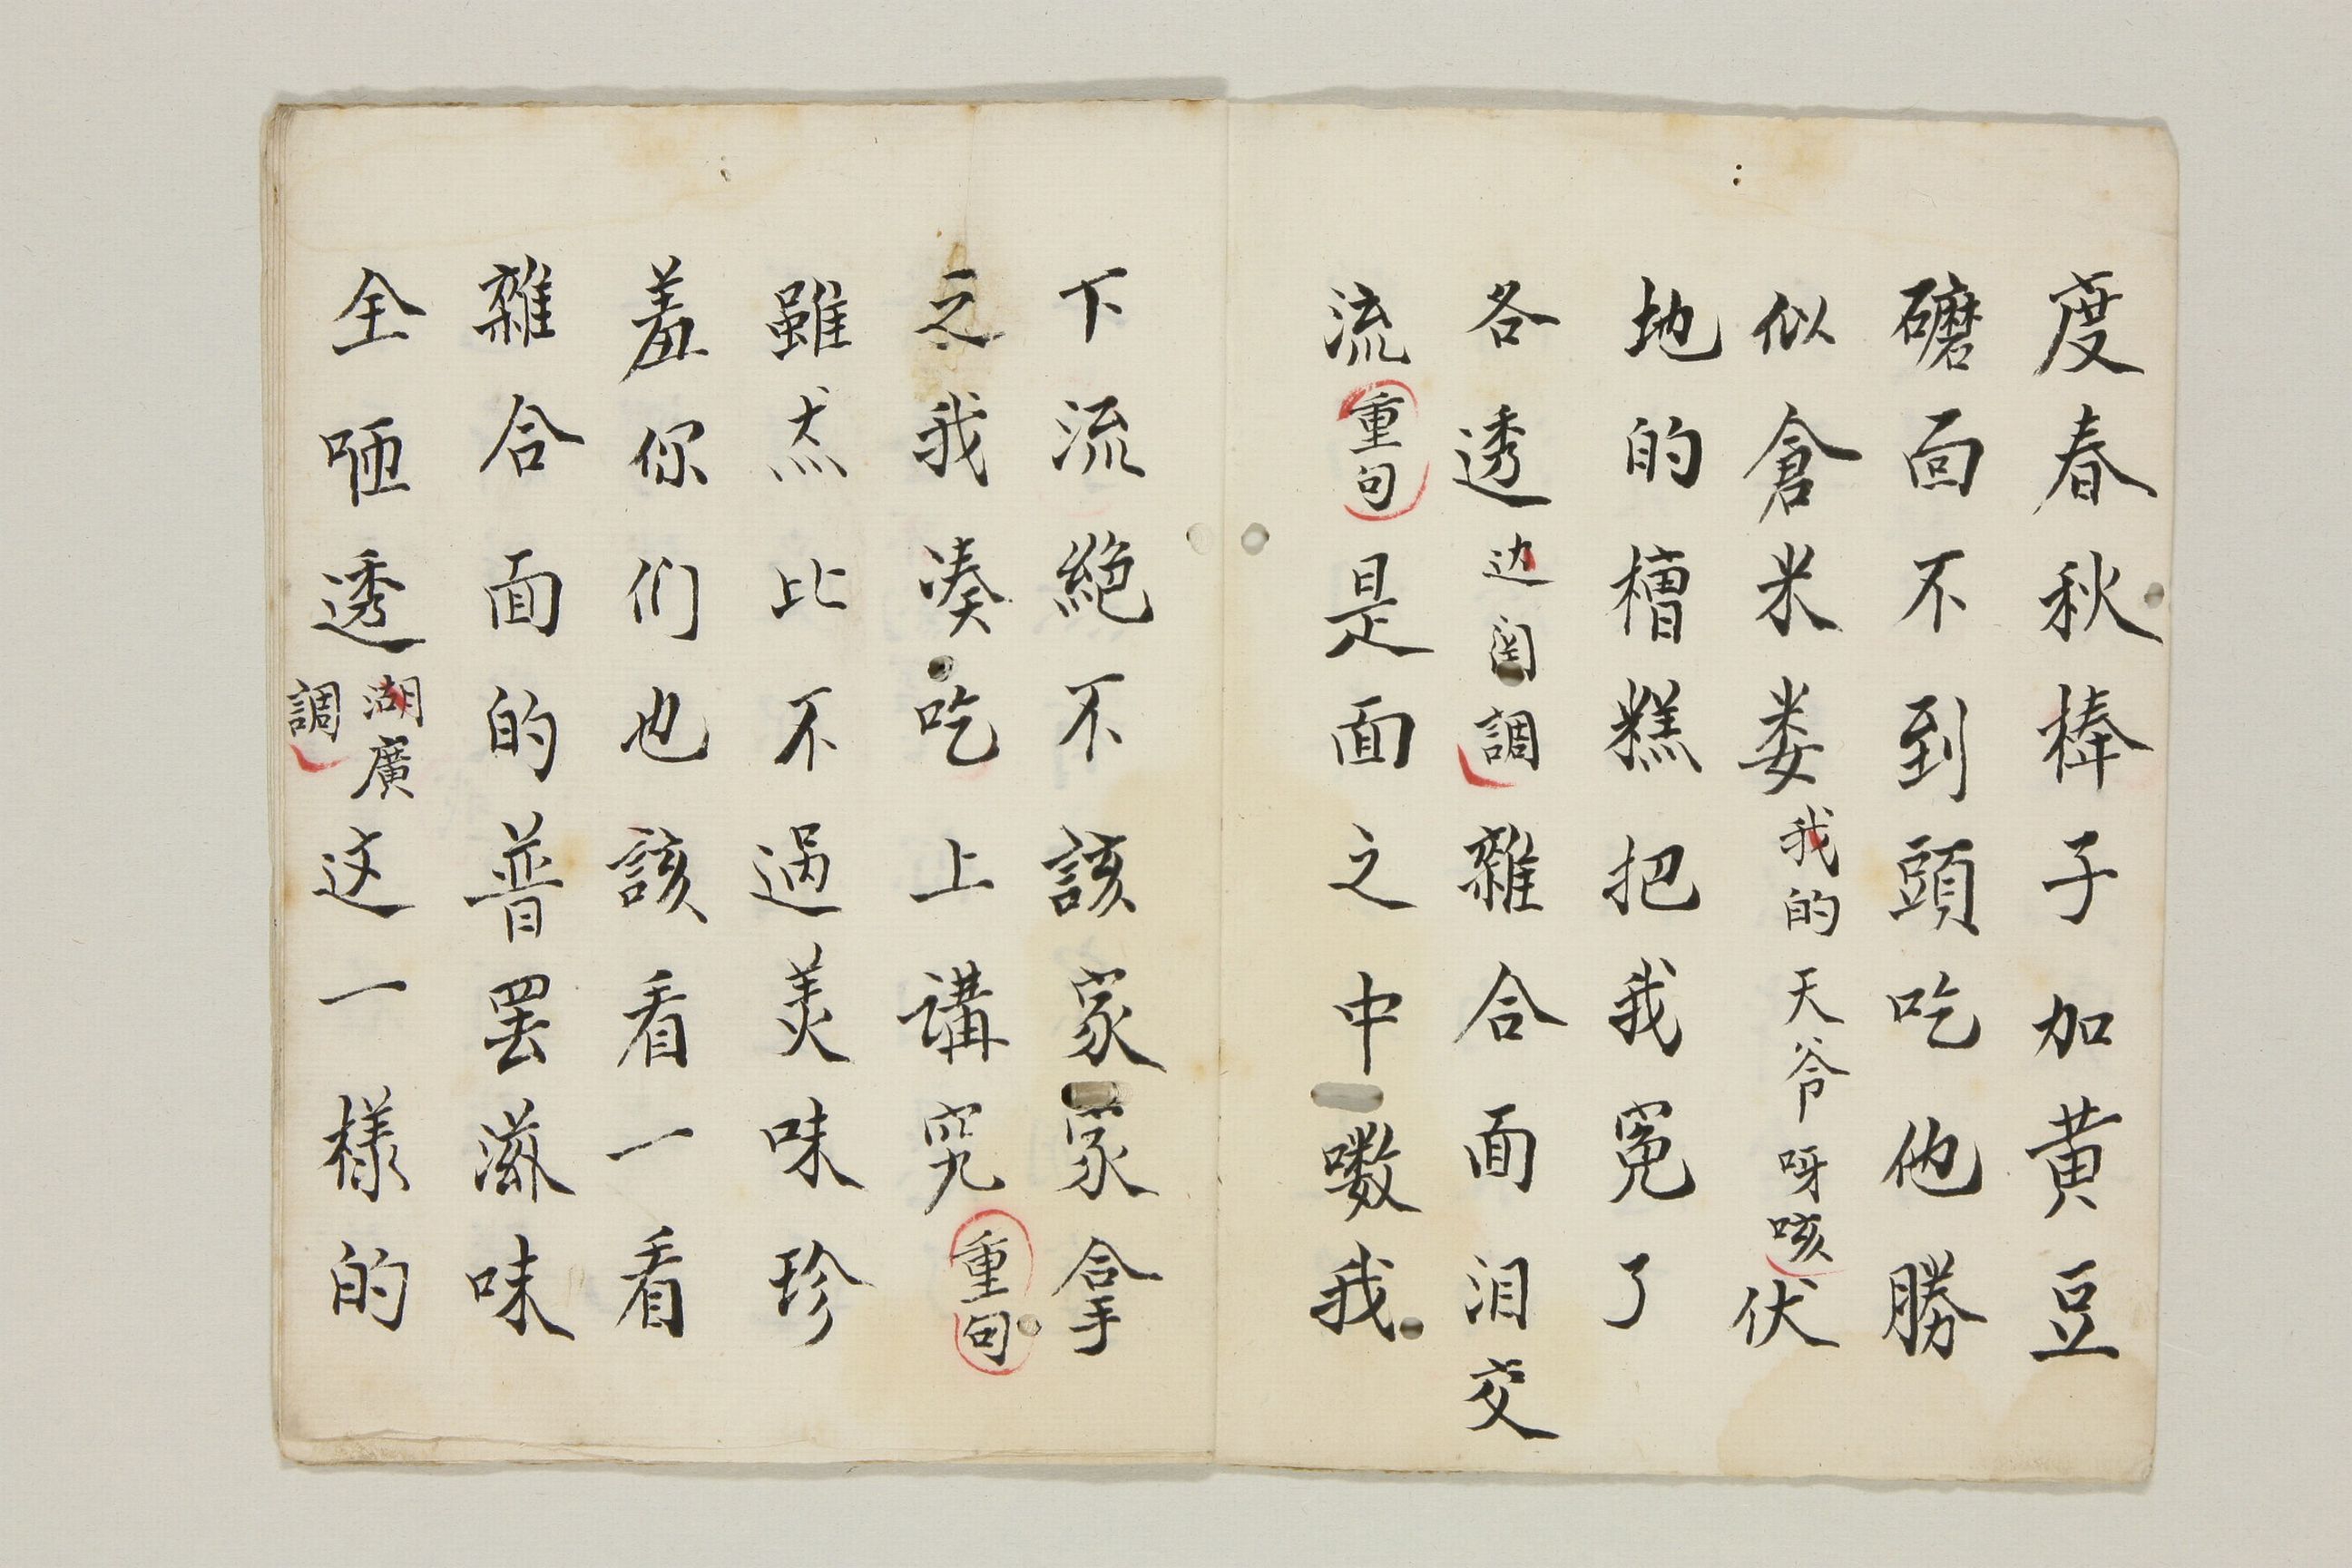 度春秋棒子加黄豆
礳面不到頭吃他勝
似倉米娄我的天爷呀咳伏
地的槽糕把我冤了
各透边関調雜合面泪交
流重句是面之中嘤我
下流絕不該家家拿
之我凑吃上講究重句
雖然比不过美味珍
羞你们也該看一看
雜合面的普罢滋味
全哂透湖廣調这一樣的